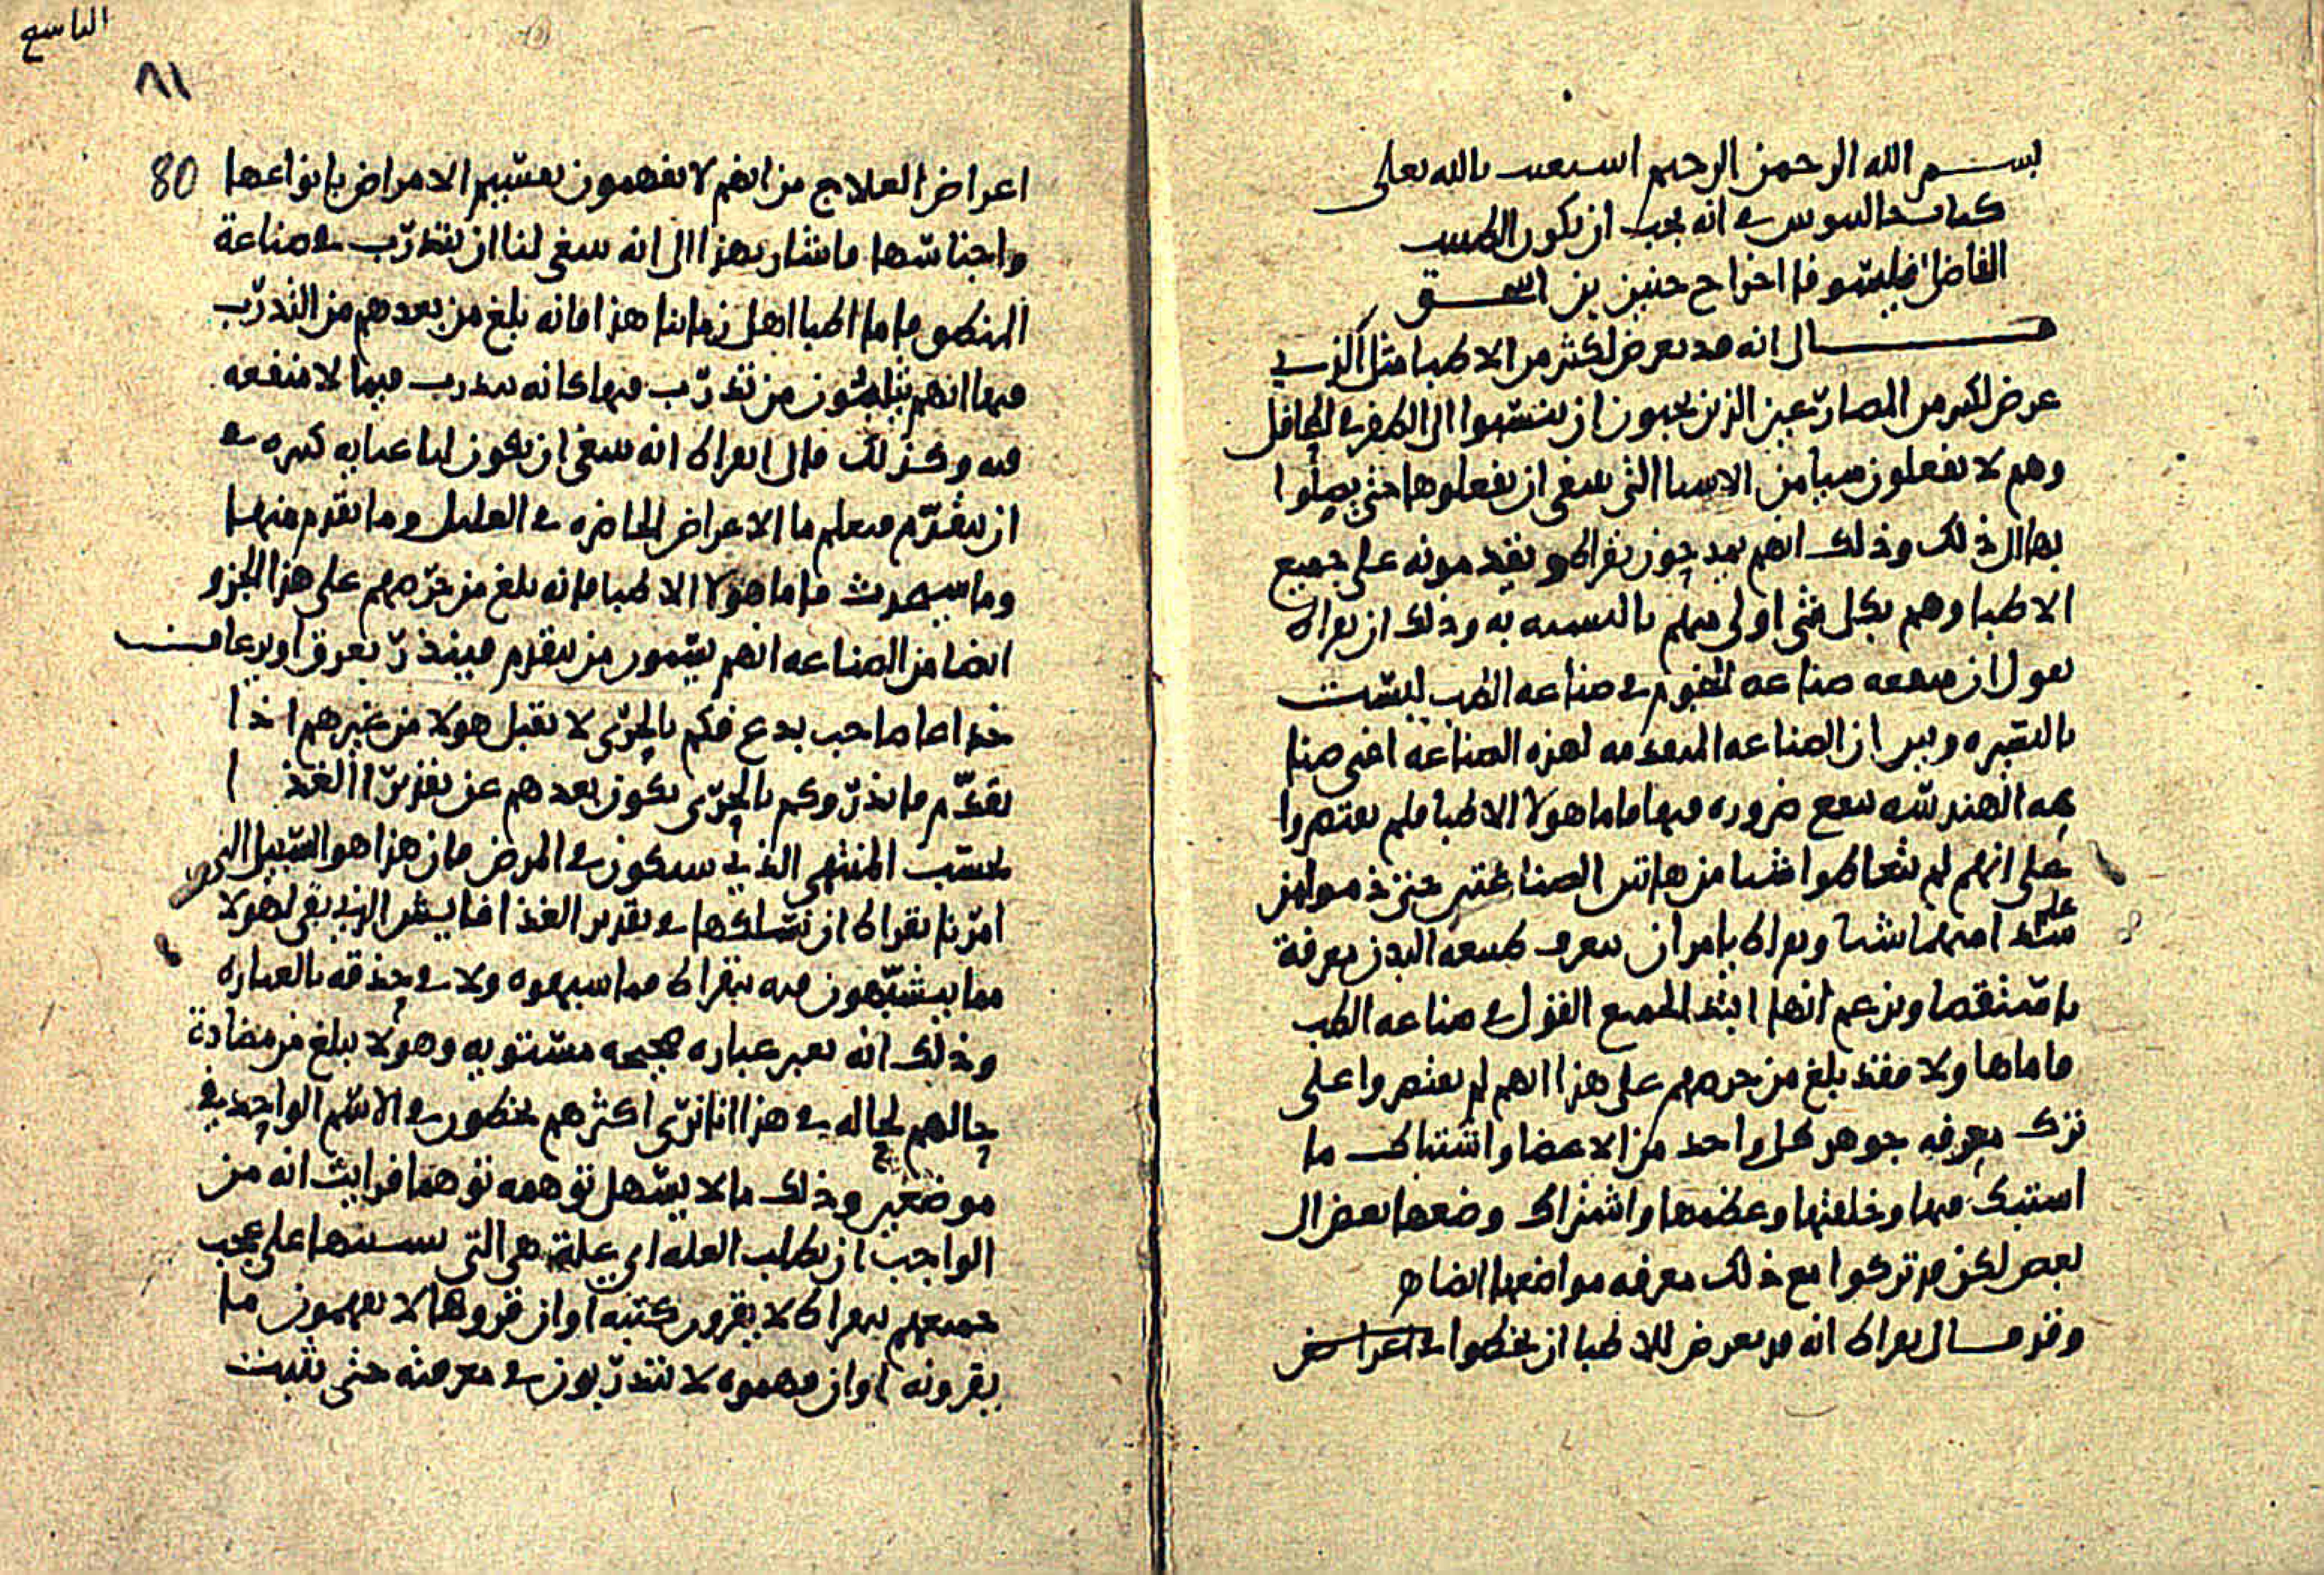 بسم الله الرحمن الرحيم استعنت بالله تعالى
كتاب جالينوس في انه يجب ان يكون الطبيب
الفاضل فيلسوفا اخراج حنين بن اسحق
قال انه قد يعرض لكثير من الاطبا مثل الذي
عرض لكثير من المصارعين الذين يحبون ان ينتهوا الى الظفر في المحافل
وهم لا يفعلون شيا من الاشيا التي ينبغي ان يفعلوها حتى يصلوا
بها الى ذلك وذلك انهم يمدحون بقراط ويقدمونه على جميع
الاطبا وهم بكل شي اولى منهم بالتشبه به وذلك ان بقراط
يقول ان منفعه صناعه النجوم في صناعه الطب ليست
باليسيره وبين ان الصناعه المتقدمه لهذه الصناعه اعني صنا
عه الهندسه تنفع ضروره فيها فاما هولا الاطبا فلم يقتصروا
على انهم لم يتعاطوا شيا من هاتين الصناعتين حتى ذموا من
علم منهما شيا وبقراط يامر ان نتعرف طبيعه البدن معرفة
بامستقصا ويزعم انها ابتدا لجميع القول في صناعه الطب
فاما هاولا فقد بلغ من حرصهم على هذا انهم لم يقتصروا على
ترك معرفه جوهر كل واحد من الاعضا واشتباك ما
اشتبك منها وخلقتها وعظمها واشتراك وضعها بعض الى
بعض لكن قد تركوا مع ذلك معرفه مواضعها ايضا
وقد قال بقراط انه قد يعرض للاطبا ان يخطوا في اعراض
التاسع
٨١
80
اعراض العلاج من انهم لا يفهمون تقسيم الامراض بانواعها
واجناسها فاشار بهذا الى انه ينبغي لنا ان نتدرب في صناعة
المنطق فاما اطبا اهل زماننا هذا فانه بلغ من بعدهم من التدرب
فيها انهم يثلبون من تدرب فيها كانه تدرب فيما لا منفعه
فيه وكذلك قال ابقراط انه ينبغي ان يكون لنا عنايه كبيره في
ان نتقدم فنعلم ما الاعراض الحاضره في العليل وما تقدم منها
وما سيحدث فاما هولا الاطبا فانه بلغ من حرصهم على هذا الجزو
ايضا من الصناعه انهم يسمون من تقدم فينذر بعرق او برعاف
خداعا صاحب بدع فكم بالحرى لا يقبل هولا من غيرهم اذا
تقدم فانذر وكم بالحرى يكون بعدهم عن تقدير الغذا
بحسب المنتهى الذي سيكون في المرض فان هذا هو السبيل التي
امرنا بقراط ان نسلكها في تقدير الغذا فايش الذي بقى لهولا
مما يتشبهون فيه ببقراط ولا في حذقه بالعباره
وذلك انه يعبر عباره صحيحه مستويه وهولا يبلغ من مضادة
حالهم لحاله في هذا انا نرى اكثرهم يخطون في الاسم الواحد في
موضعين وذلك مالا يسهل توهمه توهما فرايت انه من
الواجب ان نطلب العله اي علة هي التي بسببها على عجب
جميعهم ببقراط لا يقرون كتبه او ان قروها لا يفهمون ما
يقرونه او ان فهموه لا يتدربون في معرفته حتى يثبت